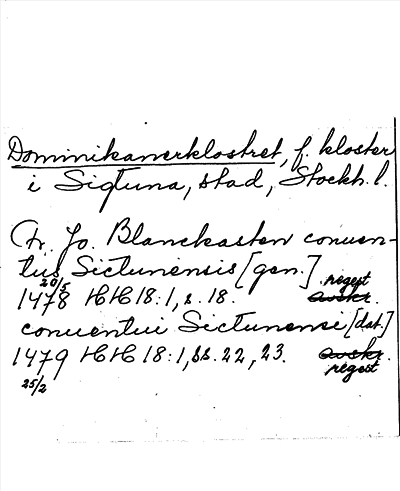 Dominikanerklostret, f. kloster
i Sigtuna, stad, Stockh. l.
Fr. Jo. Blanckasten conuen-
tus Sictunensis [gen.]
20/5 regest
1478 HH 18:1, s. 18. avskr.
conuentui Sictunensi [dat.]
1479 HH 18:1, ss. 22, 23. avskr.
25/2 regest